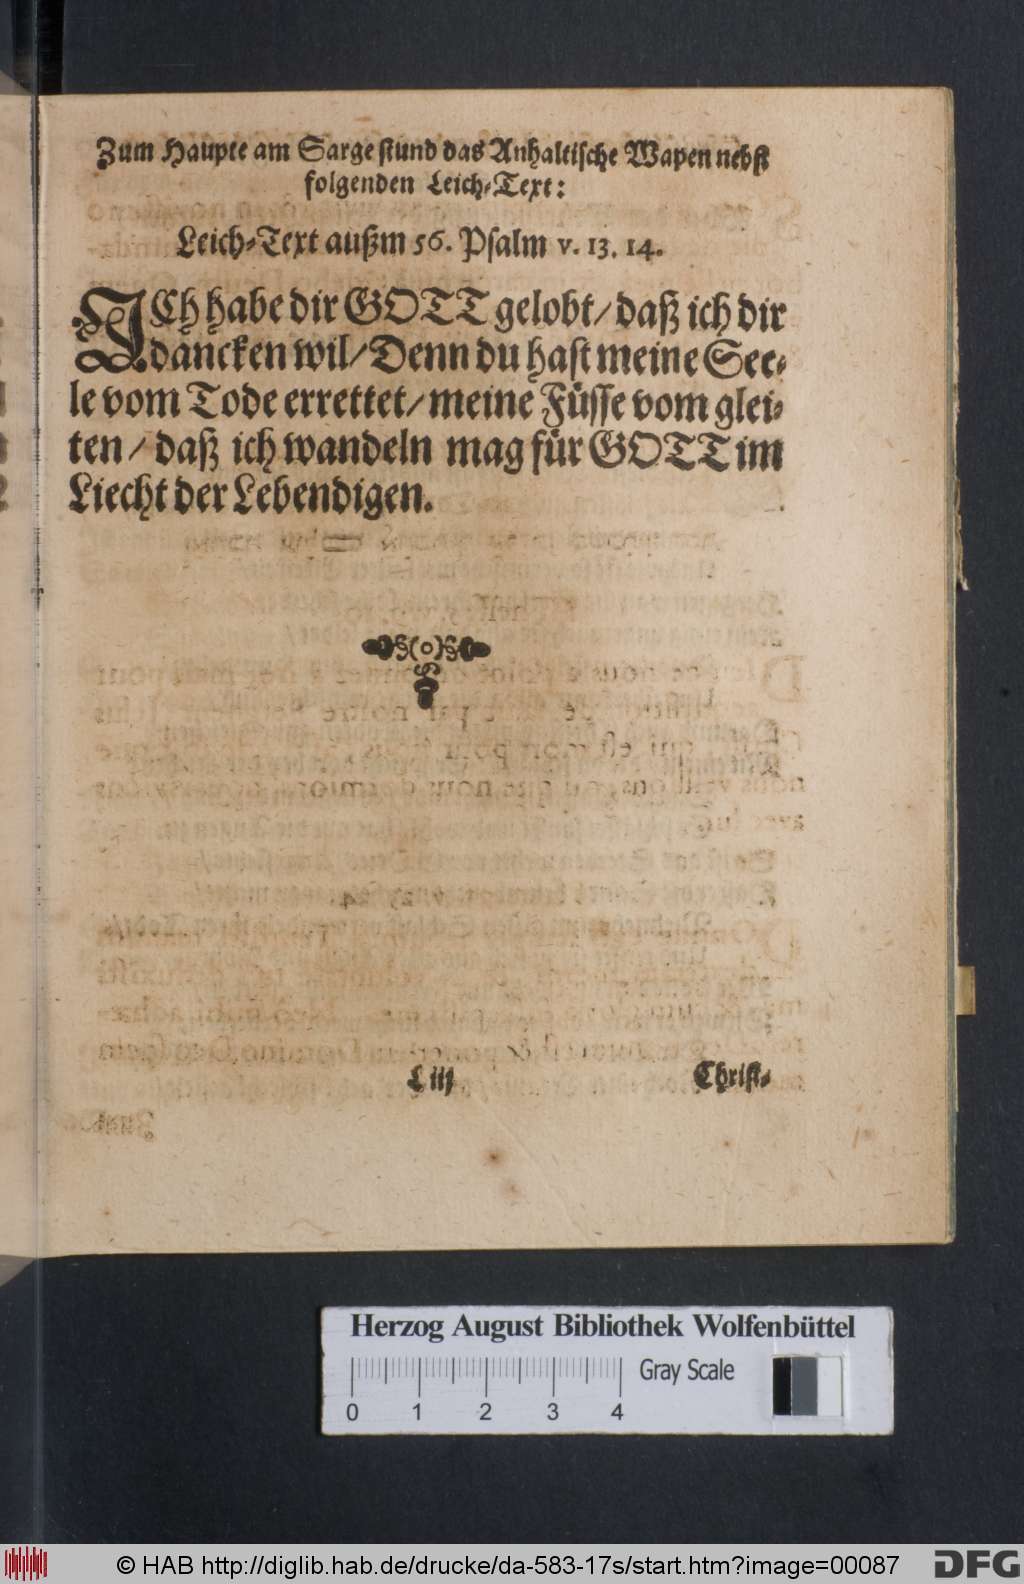 Zum Haupte am Sarge stund das Anhaltische Wapen nebst
folgenden Leich-Text:
Leich-Text außm 56. Psalm v. 13. 14.
ICh habe dir GOTT gelobt/ daß ich dir
dancken wil/ Denn du hast meine See-
le vom Tode errettet/ meine Füsse vom glei-
ten/ daß ich wandeln mag für GOTT im
Liecht der Lebendigen.
§(o)§
L iij
Christ-
Herzog August Bibliothek Wolfenbüttel
Gray Scale
0 1 2 3 4
© HAB http://diglib.hab.de/drucke/da-583-17s/start.htm?image=00087
DFG